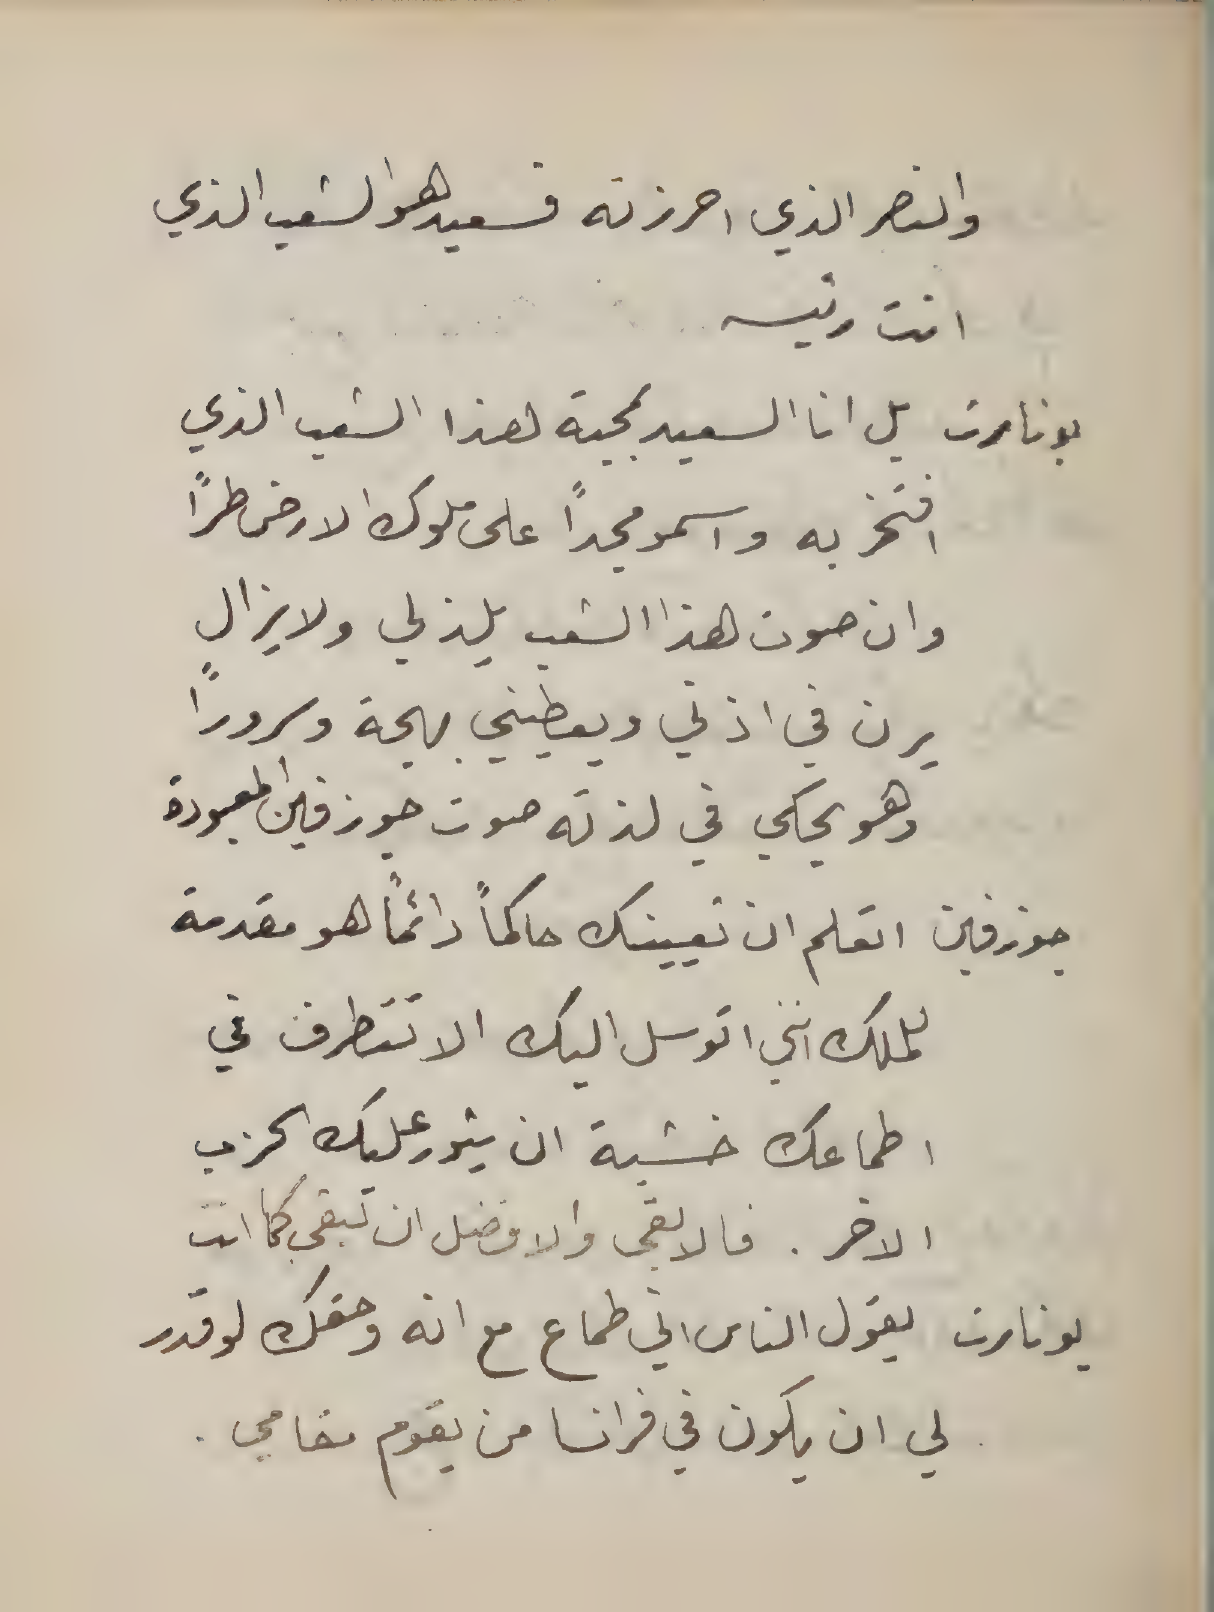 والنصر الذي احرزته فسعيد هو الشعب الذي
انت رئيسه
بونابرت بل انا السعيد بمحبة هذا الشعب الذي
افتخر به واسمو مجداً على ملوك الارض طراً
وان صوت هذا الشعب يلذ لي ولا يزال
يرن في اذني ويعطيني بهجة وسروراً
وهو يحكي في لذته صوت جوزفين المعبودة
جوزفين اتعلم ان تعيينك حاكماً دائماً هو مقدمة
للملك انني اتوسل اليك الا تتطرف في
اطماعك خشية ان يثور عليك الحزب
الاخر . فالابقى والافضل ان تبقى كما انت
بونابرت يقول الناس اني طماع مع انه وحقك لو قدر
لي ان يكون في فرانسا من يقوم مقامي .